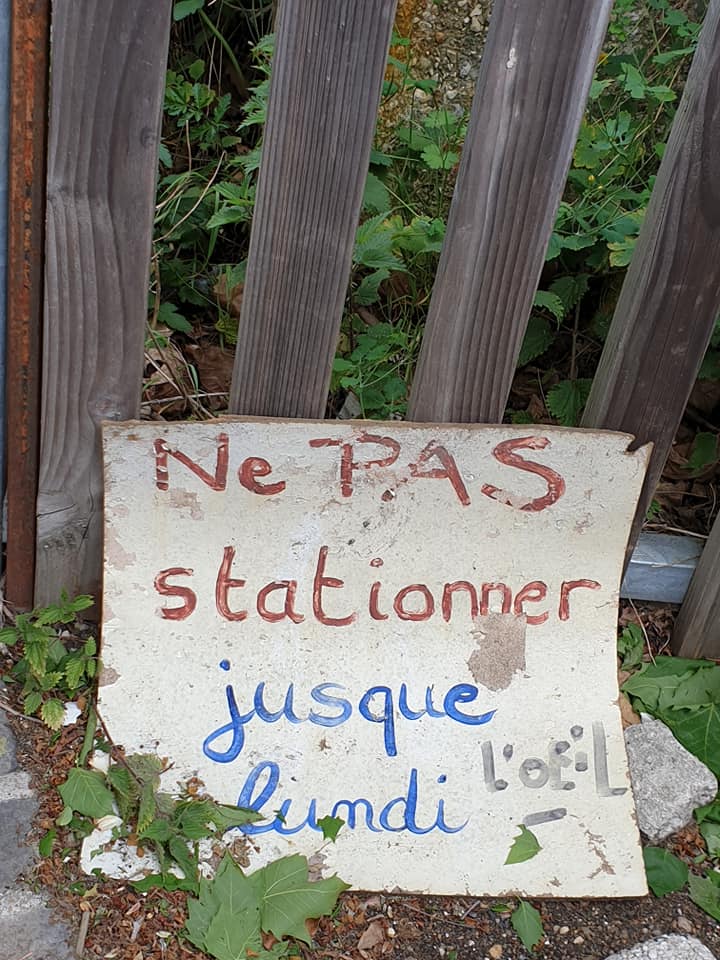 Ne PAS
stationner
jusque
lundi
l'oeil